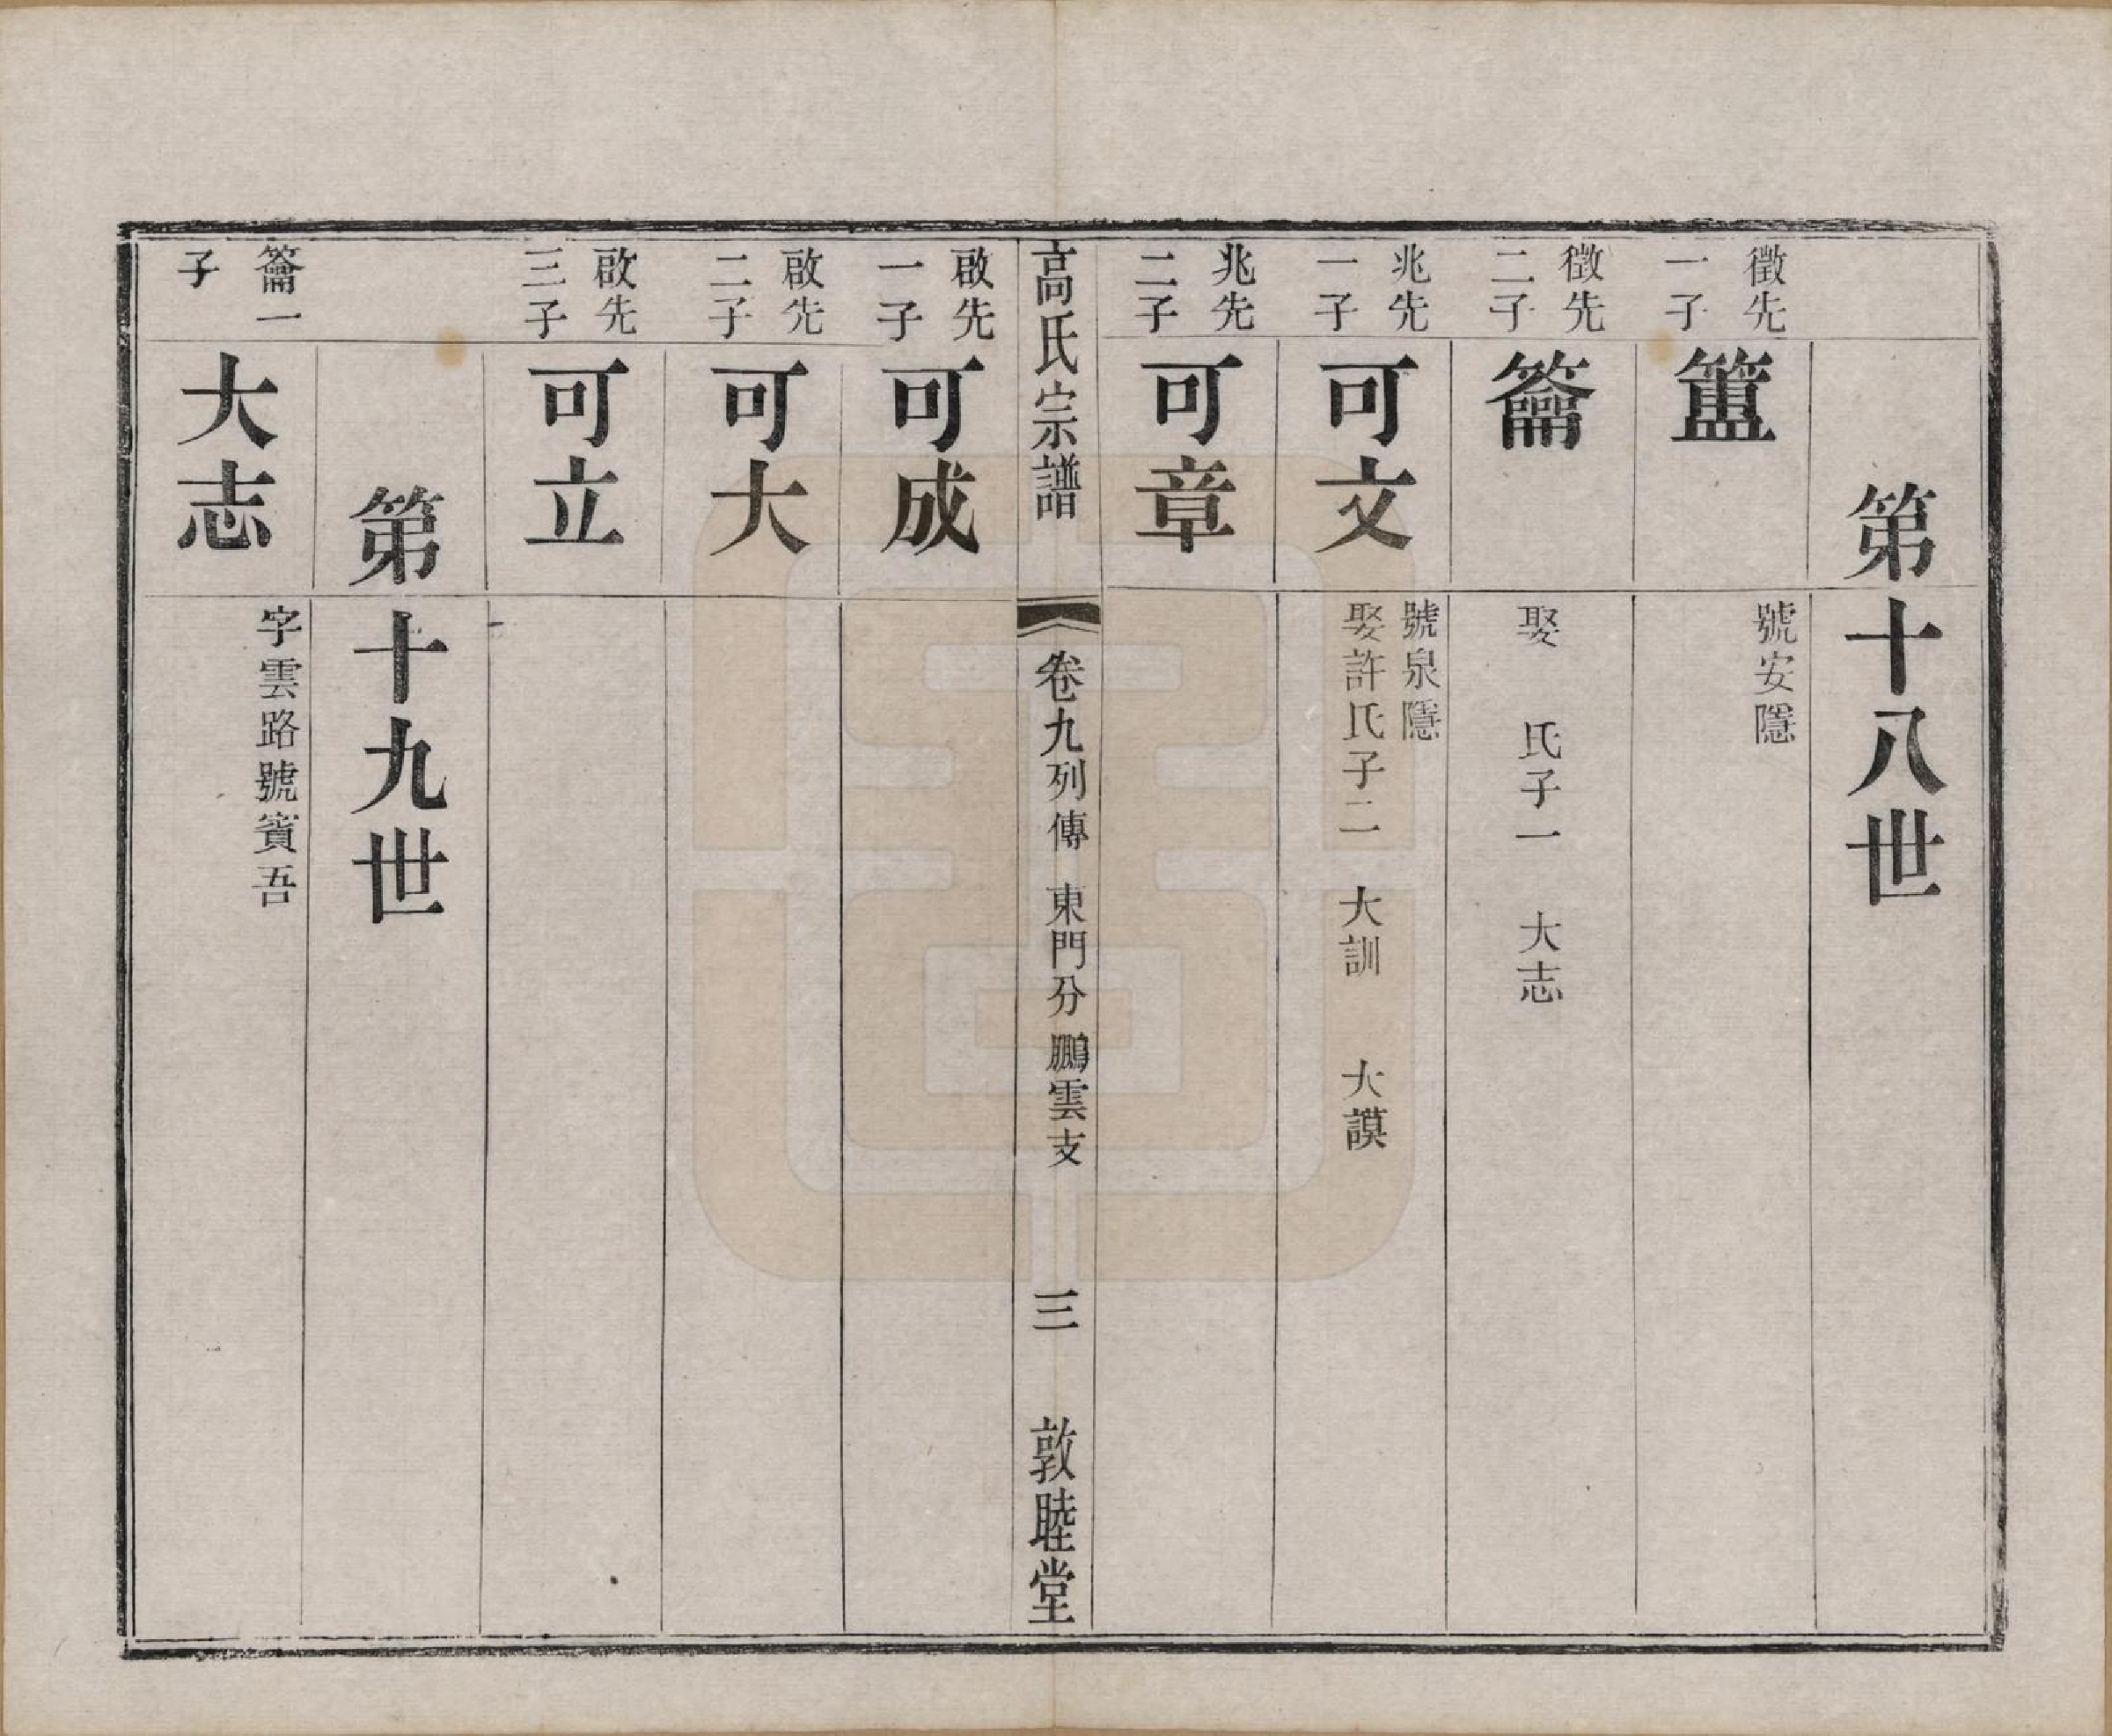 第十八世
徵先
一子
簠
號安隱
徵先
二子
籥
娶　氏子一　大志
兆先
一子
可文
號泉隱
娶許氏子二　大訓　大謨
兆先
二子
可章
高氏宗譜　卷九列傳　東門分鵬雲支　三　敦睦堂
啟先
一子
可成
啟先
二子
可大
啟先
三子
可立
第十九世
籥一
子
大志
字雲路號賓吾